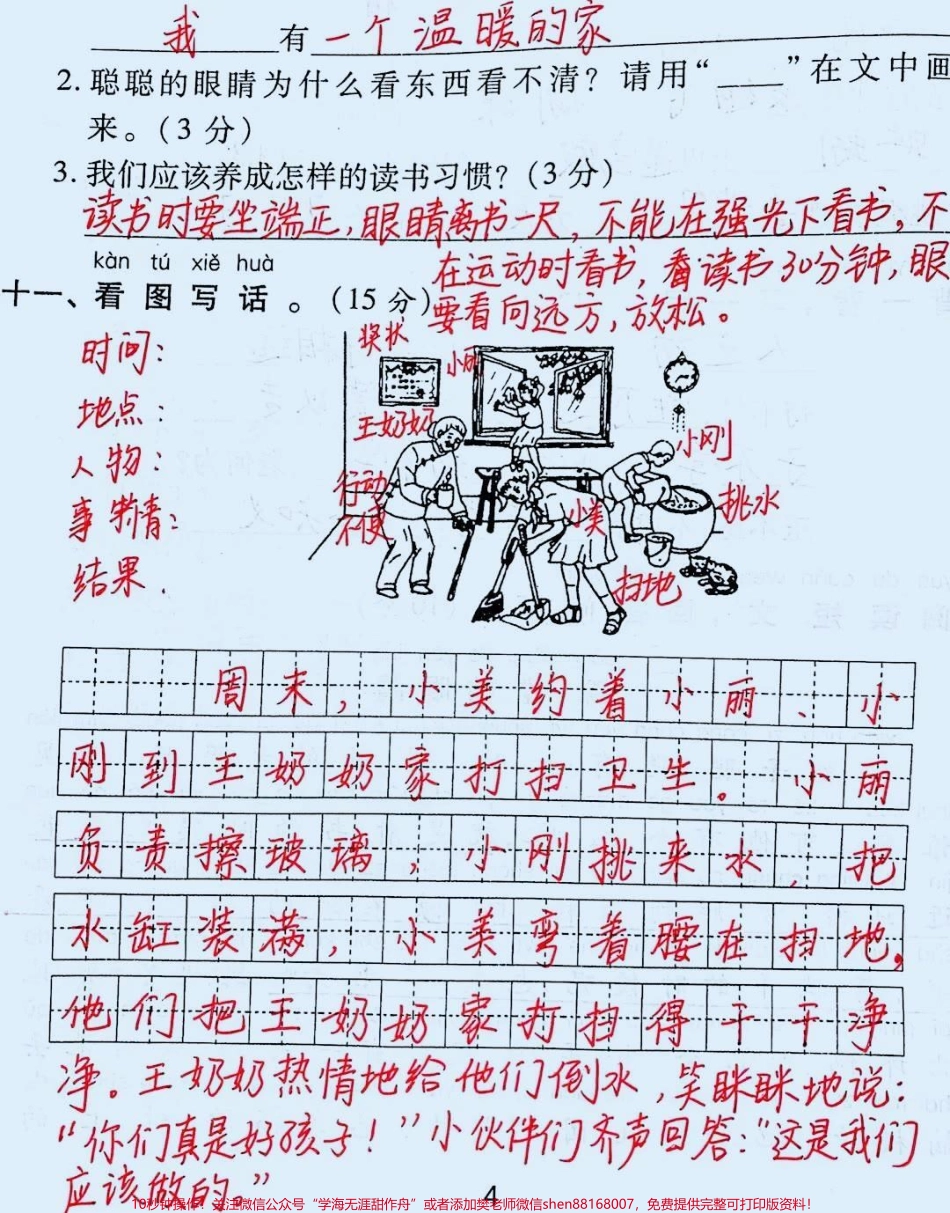 我 有 一个温暖的家
2. 聪聪的眼睛为什么看东西看不清？请用“____”在文中画
来。（3 分）
3. 我们应该养成怎样的读书习惯？（3 分）
读书时要坐端正，眼睛离书一尺，不能在强光下看书，不
在运动时看书，看读书30分钟，眼
要看向远方，放松。
kàn tú xiě huà
十一、看图写话。（15 分）
时间：
地点：
人物：
事情：
结果．
奖状
小丽
王奶奶
行动
不便
小刚
挑水
小美
扫地
周末，小美约着小丽、小
刚到王奶奶家打扫卫生。小丽
负责擦玻璃，小刚挑来水，把
水缸装满，小美弯着腰在扫地。
他们把王奶奶家打扫得干干净
净。王奶奶热情地给他们倒水，笑眯眯地说：
“你们真是好孩子！”小伙伴们齐声回答：“这是我们
应该做的。”
4
10秒钟操作！关注微信公众号“学海无涯甜作舟”或者添加樊老师微信shen88168007，免费提供完整可打印版资料！